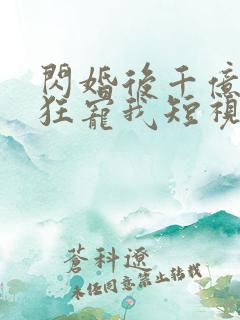 閃婚後千億
狂寵我短視
蒼科遼
未任同意禁止转載